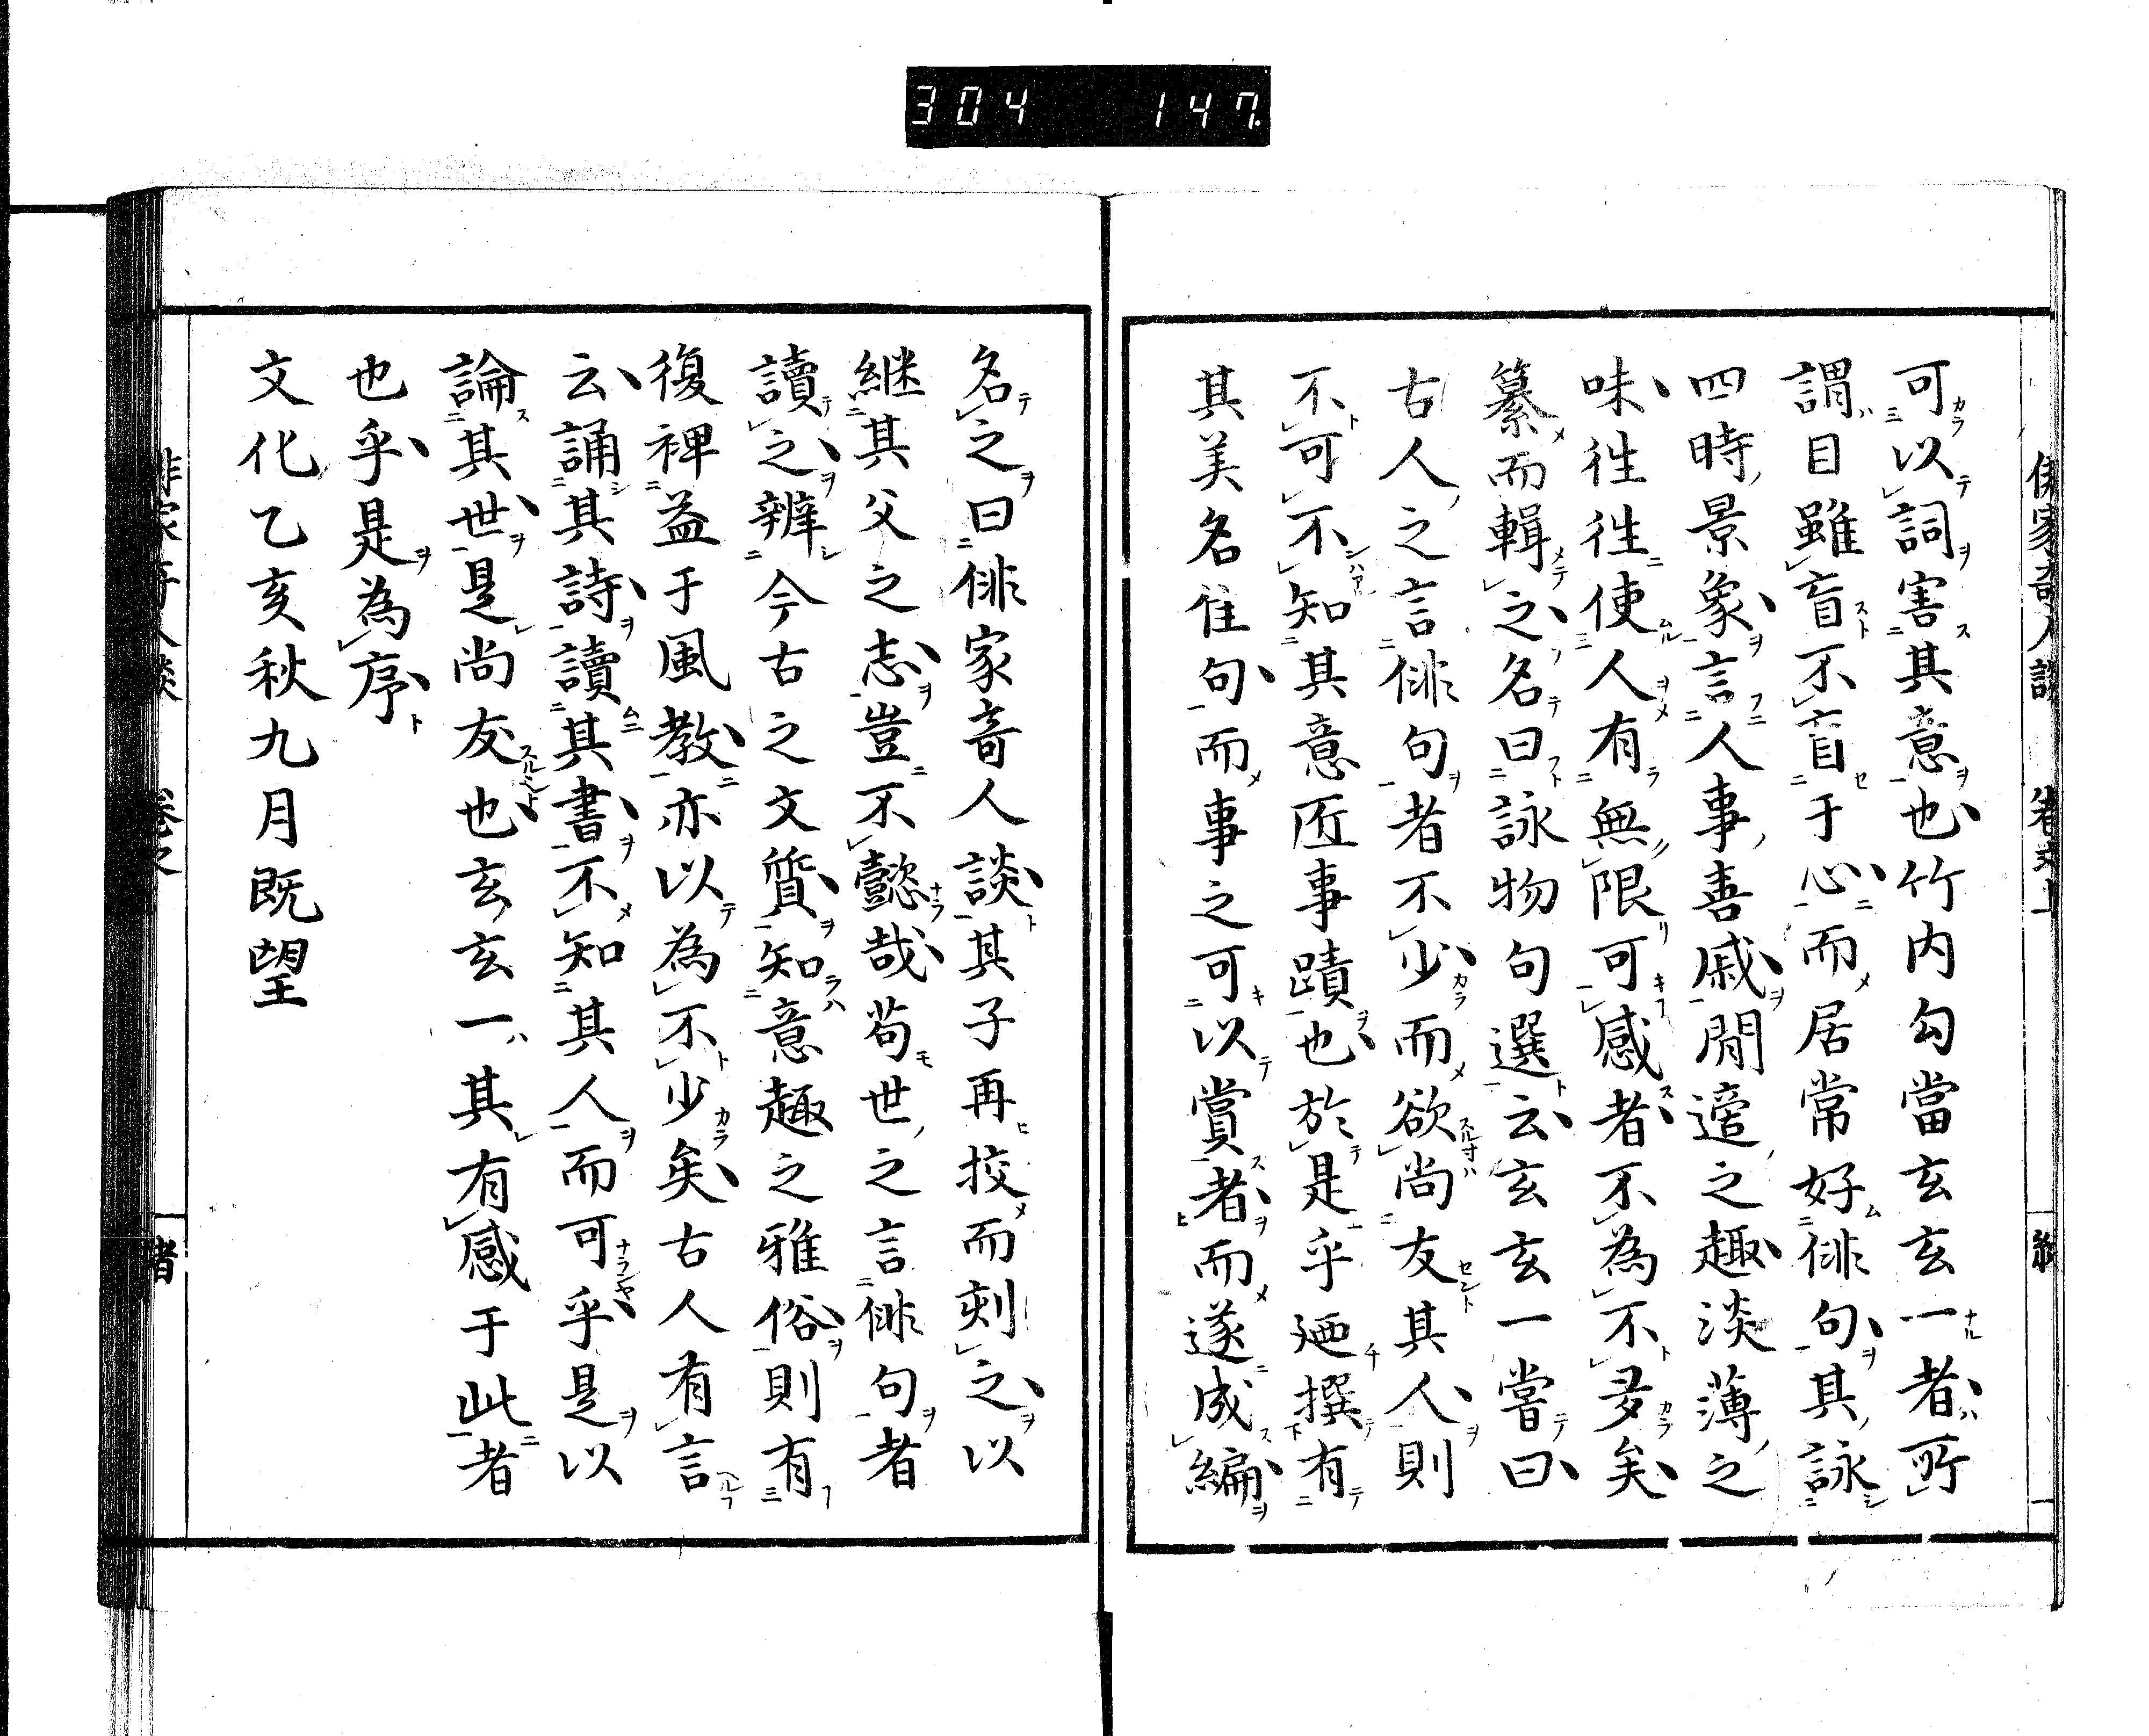 304 147
可以詞害其意也竹内勾當玄玄一者所
謂目雖盲不盲于心而居常好俳句其詠
四時景象言人事喜戚閒適之趣淡薄之
味徃徃使人有無限可感者不為不多矣
纂而輯之名曰詠物句選云玄玄一嘗曰
古人之言俳句者不少而欲尚友其人則
不可不知其意匠事蹟也於是乎廼撰有
其美名佳句而事之可以賞者而遂成編
名之曰俳家奇人談其子再挍而刻之以
継其父之志豈不懿哉茍世之言俳句者
讀之辨今古之文質知意趣之雅俗則有
復裨益于風教亦以為不少矣古人有言
云誦其詩讀其書不知其人而可乎是以
論其世是尚友也玄玄一其有感于此者
也乎是為序
文化乙亥秋九月既望